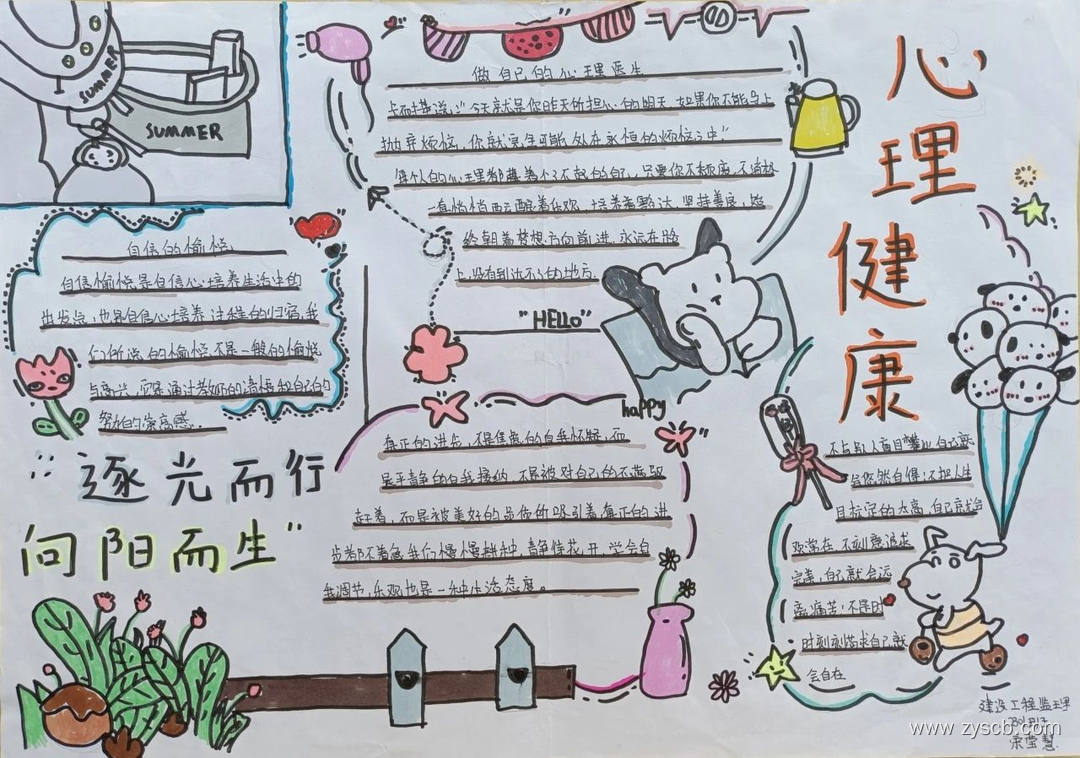 SUMMER
SUMMER
心
理
健
康
做自己的心理医生
说："今天就是你昨天所担心的明天，如果你不能马上
抛弃烦恼，你就要尽可能处在永恒的烦恼之中"
每个人的心理都藏着个了不起的自己，只要你不颓废，不消极
一直悄悄酝酿着乐观，培养着豁达，坚持着善良，始
终朝着梦想方向前进，永远在路
上，没有到达不了的地方。
"HELLO"
happy
自信的愉悦
自信愉悦是自信心培养生活中的
出发点，也是自信心培养过程的归宿，我
们所说的愉悦不是一般的愉悦
与高兴，它是通过教师的清情和自己的
努力的崇高感..
"逐光而行
向阳而生"
真正的进步，不是焦急的自我怀疑，而
是平静的自我接纳，不是被对自己的不满驱
赶着，而是被美好的品质所吸引着，真正的进
步都不着急，我们慢慢耕种，静待花开，学会自
我调节，乐观也是一种生活态度。
不与别人盲目攀比自己就
会悠然自得；不把人生
目标定的太高，自己就会
欢常在，不刻意追求
完美，自己就会远
离痛苦；不是时
时刻刻苛求自己就
会自在
建设工程监理
www.zyscb.com